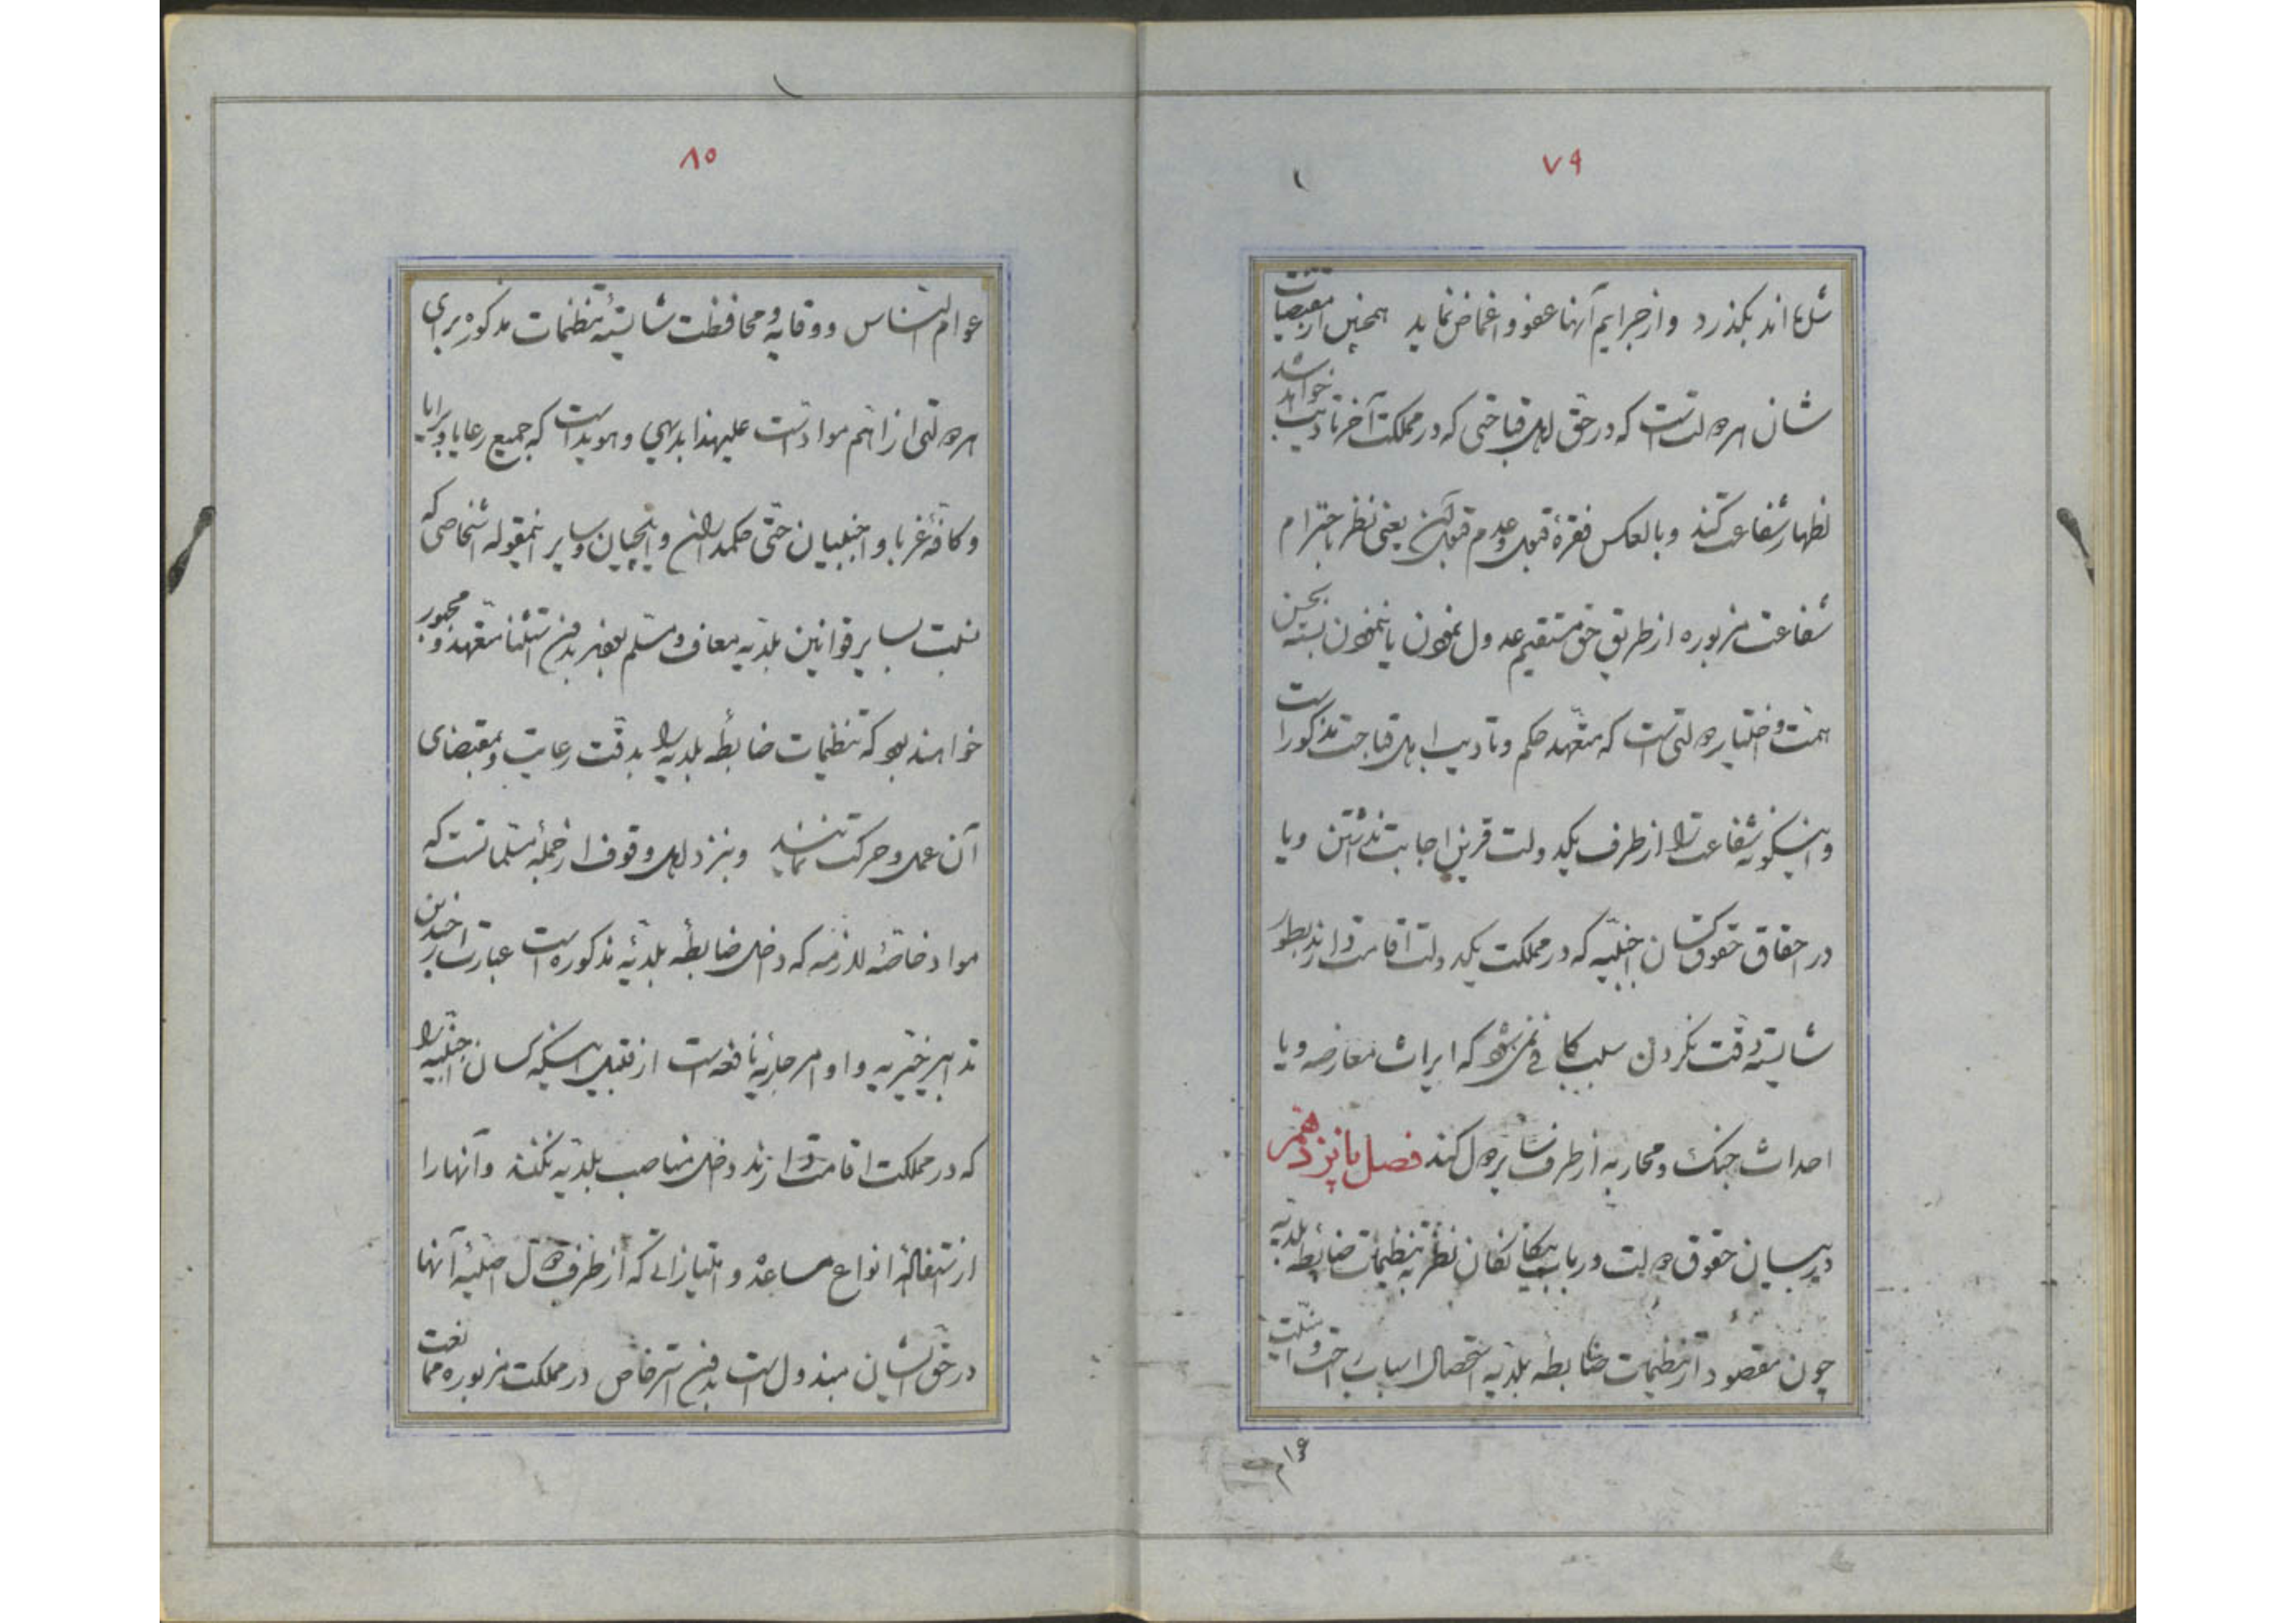 ۷۹
شده‌اند بگذرد و از جرایم آنها عفو و اغماض نماید همچنین از مقتضیات
شان هر دولت است که در حق اهل قباحتی که در مملکت آخر تأدیب خواهند شد
اظهار شفاعت کنند و بالعکس فقرهٔ قبول و عدم قبول آن یعنی نظر باحترام
شفاعت مزبوره از طریق حق مستقیم عدول نمودن یا ننمودن بسته بحسن
همت و اختیار دولتی است که متعهد حکم و تأدیب اهل قباحت مذکور است
و اینگونه شفاعت را از طرف یکدولت قرین اجابت نداشتن و یا
در احقاق حقوق کسان اجنبیه که در مملکت یکدولت اقامت دارند بطور
شایسته دقت نکردن سبب کافی نمی‌شود که ایراث معارضه و یا
احداث جنک و محاربه از طرف سایر دول کند فصل پانزدهم
در بیان حقوق دولت در باب بیکانکان نظر به تنظیمات ضابطه بلدیه
چون مقصود از تنظیمات ضابطه بلدیه استحصال اسباب راحت و امنیت
عوام
۸۰
عوام الناس و وقایه و محافظت شایستهٔ تنظیمات مذکوره برای
هر دولتی از اهم مواد است علیهذا بدیهی و هویداست که جمیع رعایا و برایا
و کافهٔ غربا و اجنبیان حتی حکمداران و ایلچیان و سایر اینمقوله اشخاصی که
نسبت بسایر قوانین بلدیه معاف و مسلم بدون استثنا متعهد و مجبور
خواهند بود که تنظیمات ضابطه بلدیه را بدقت رعایت و بمقتضای
آن عمل و حرکت نمایند و نزد اهل وقوف از جملهٔ مسلماتست که
مواد خاصهٔ لازمه که داخل ضابطهٔ بلدیهٔ مذکوره است عبارت از چندین
تدابیر خیریه و اوامر جازیهٔ نافعه است از قبیل اینکه کسان اجنبیه را
که در مملکت اقامت دارند داخل مناصب بلدیه نکنند و آنها را
از استفالهٔ انواع مساعده و امتیازاتی که از طرف دول اصلیهٔ آنها
در حق ایشان مبذول است بدون استرخاص در مملکت مزبوره ممانعت